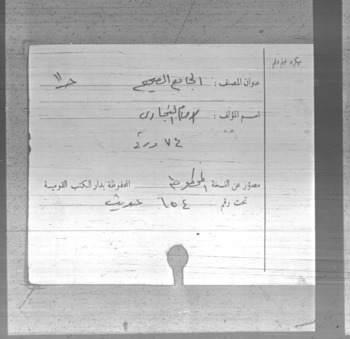 ميكروفيلم رقم
عنوان المصنف : الجامع الصحيح حـ ١١
اسم المؤلف : الامام البخارى
٧٤ ورقة
مصور عن النسخة المخطوطة المحفوظة بدار الكتب القومية
تحت رقم ١٥٤ حديث